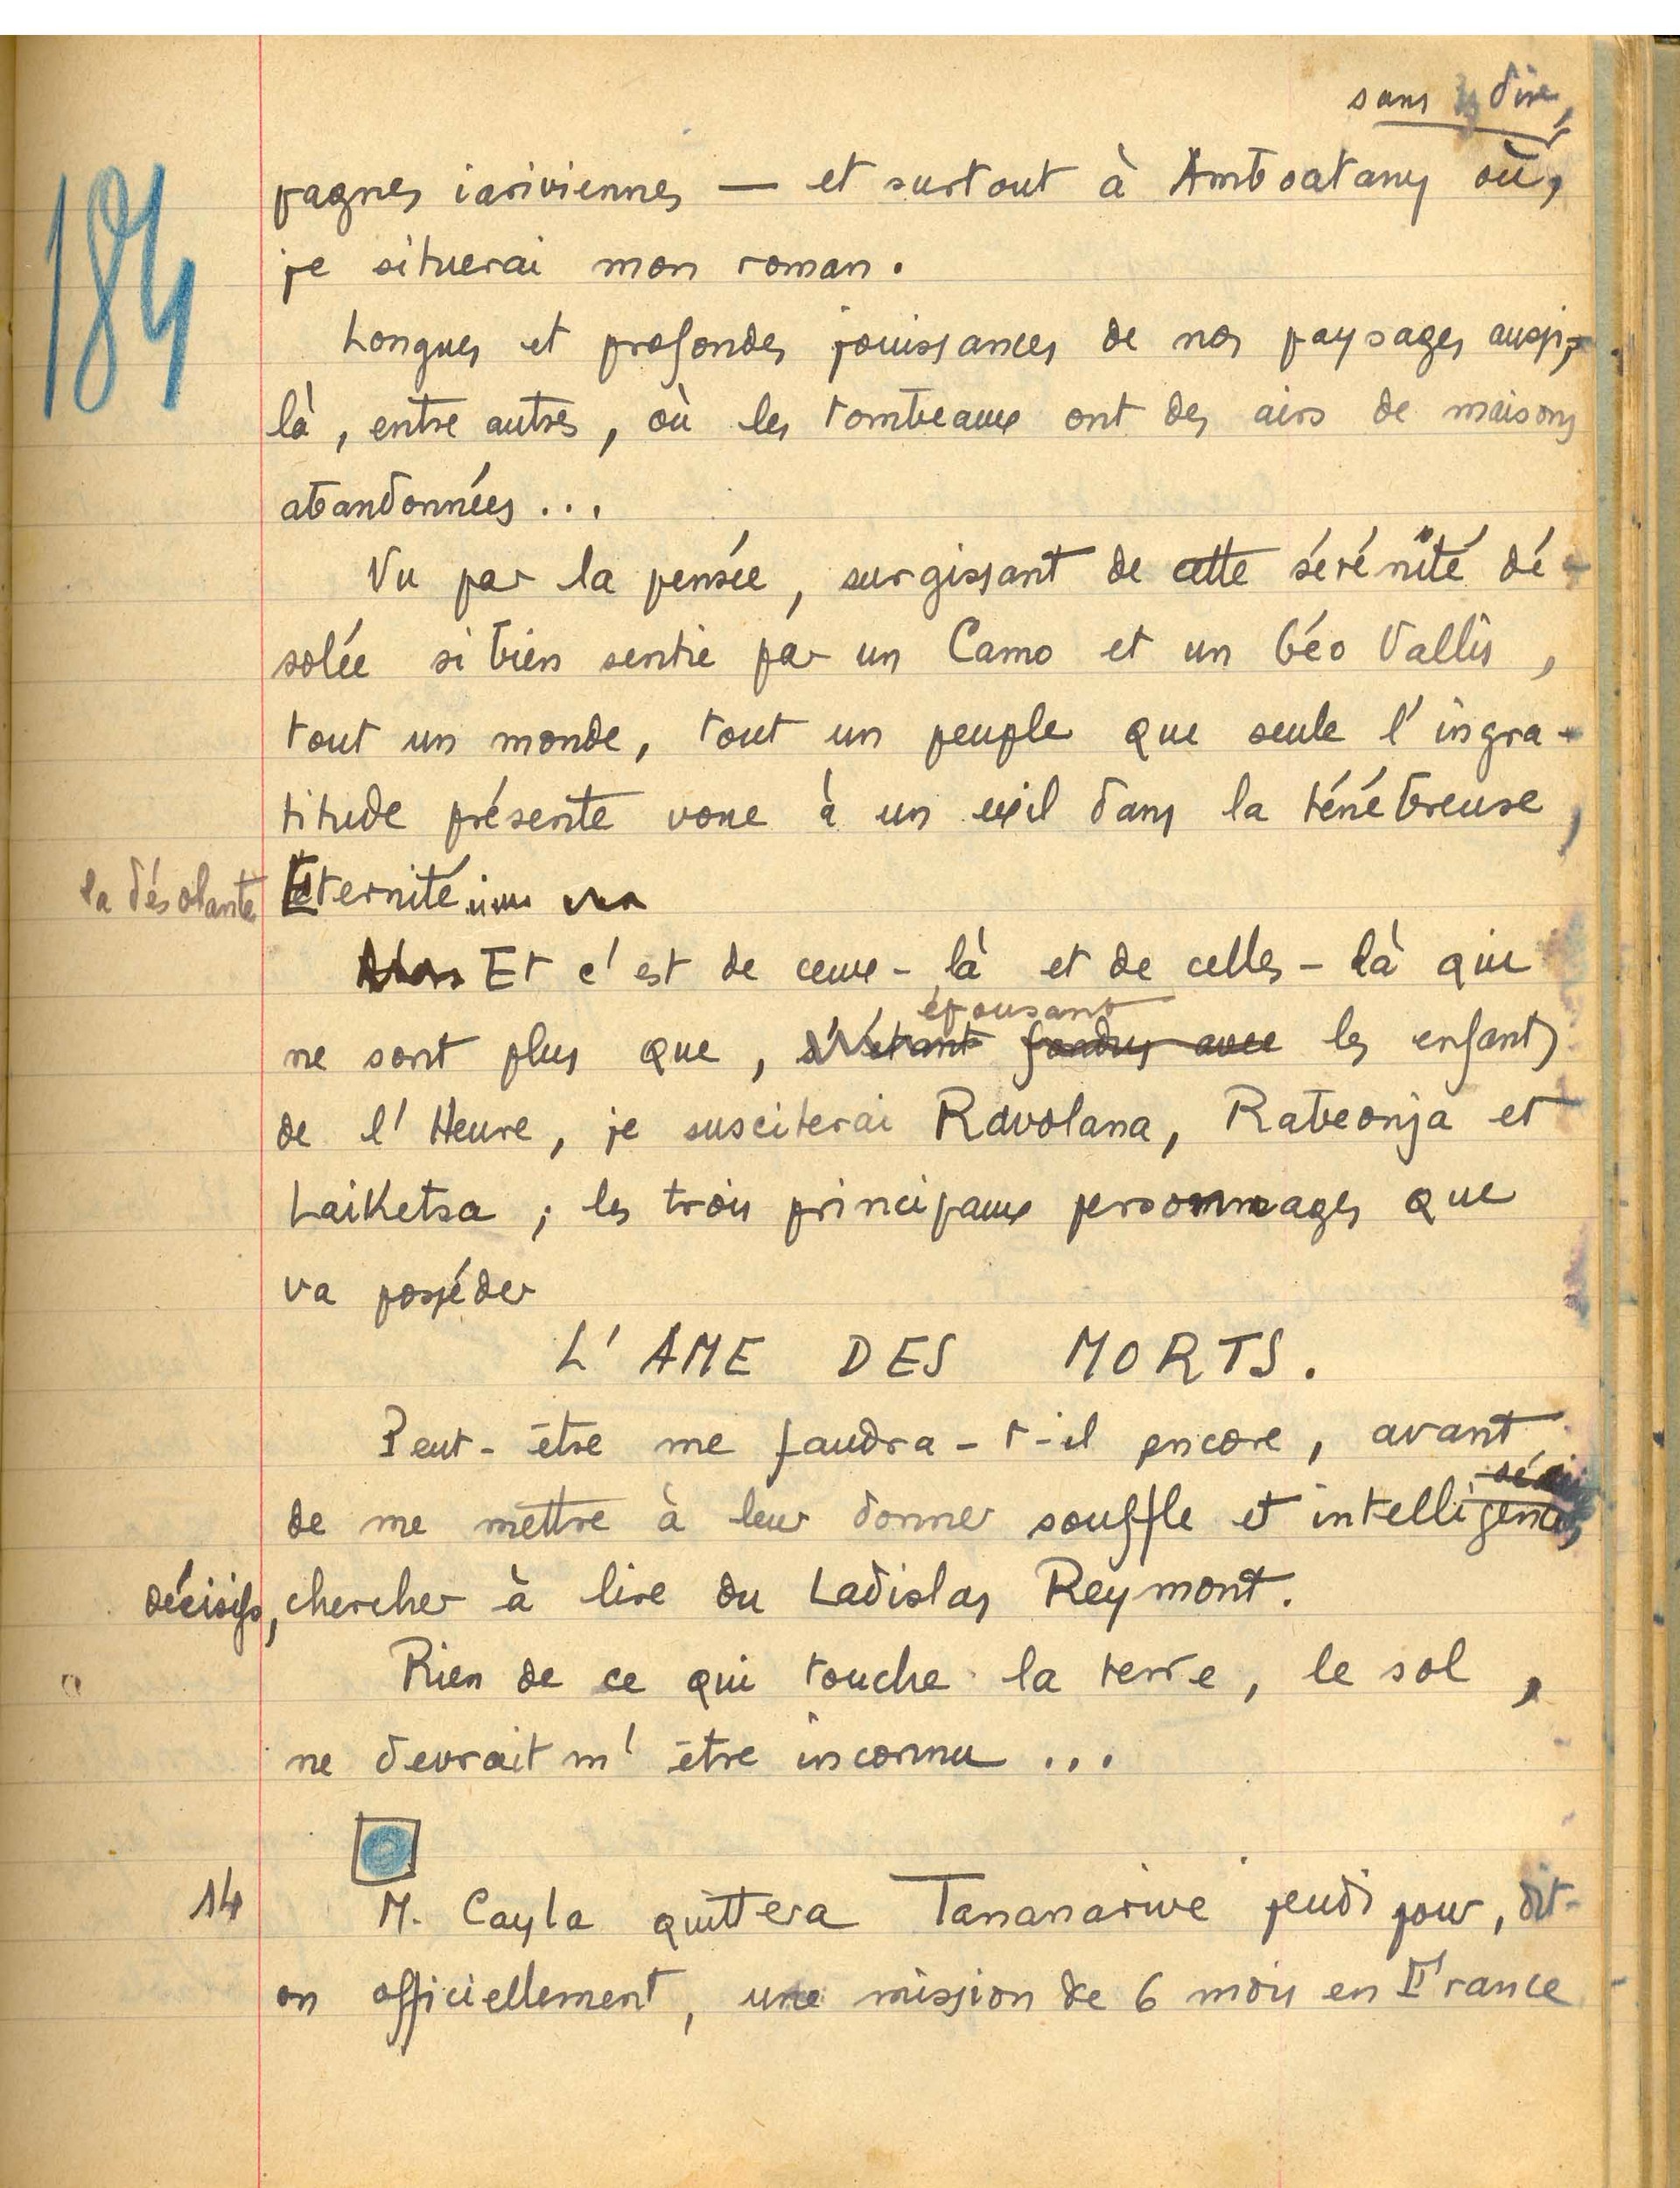 184
sans dire,
pagnes iariviennes — et surtout à Amboatany où,
je situerai mon roman.
Longues et profondes jouissances de nos paysages aussi,
là, entre autres, où les tombeaux ont des airs de maisons
abandonnées...
Vu par la pensée, surgissant de cette sérénité dé-
solée si bien sentie par un Camo et un Géo Vallis,
tout un monde, tout un peuple que seule l'ingra-
titude présente voue à un exil dans la ténébreuse,
la désolante Eternité
Alors Et c'est de ceux-là et de celles-là qui
épousant
ne sont plus que, s'étant fondus avec les enfants
de l'Heure, je susciterai Ravolana, Rabeonja et
Laiketsa ; les trois principaux personnages que
va posséder
L'AME DES MORTS.
Peut-être me faudra-t-il encore, avant
de me mettre à leur donner souffle et intelligence
décisifs, chercher à lire du Ladislas Reymont.
Rien de ce qui touche la terre, le sol,
ne devrait m'être inconnu...
14 M. Cayla quittera Tananarive jeudi pour, dit-
on officiellement, une mission de 6 mois en France